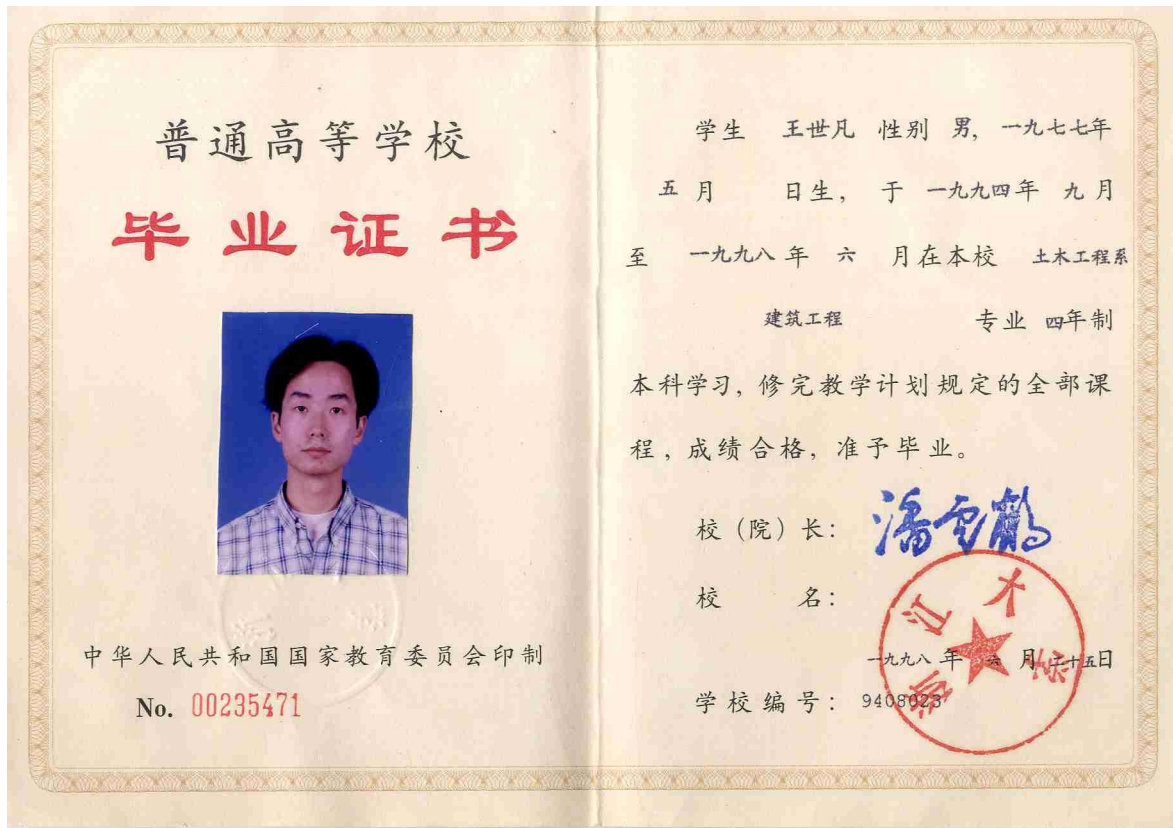 普通高等学校
毕业证书
中华人民共和国国家教育委员会印制
No. 00235471
学生 王世凡 性别 男, 一九七七年
五月 日生, 于 一九九四年 九月
至 一九九八年 六 月在本校 土木工程系
建筑工程 专业 四年制
本科学习, 修完教学计划规定的全部课
程, 成绩合格, 准予毕业。
校(院)长: 潘云鹤
校 名:
浙江大学
一九九八年 六 月二十五日
学校编号: 9408023